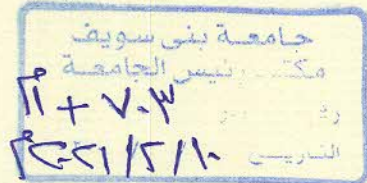 جامعة بنى سويف
مكتب رئيس الجامعة
٧٠٣ +
التاريخ ٢٠٢١/٢/١٠م